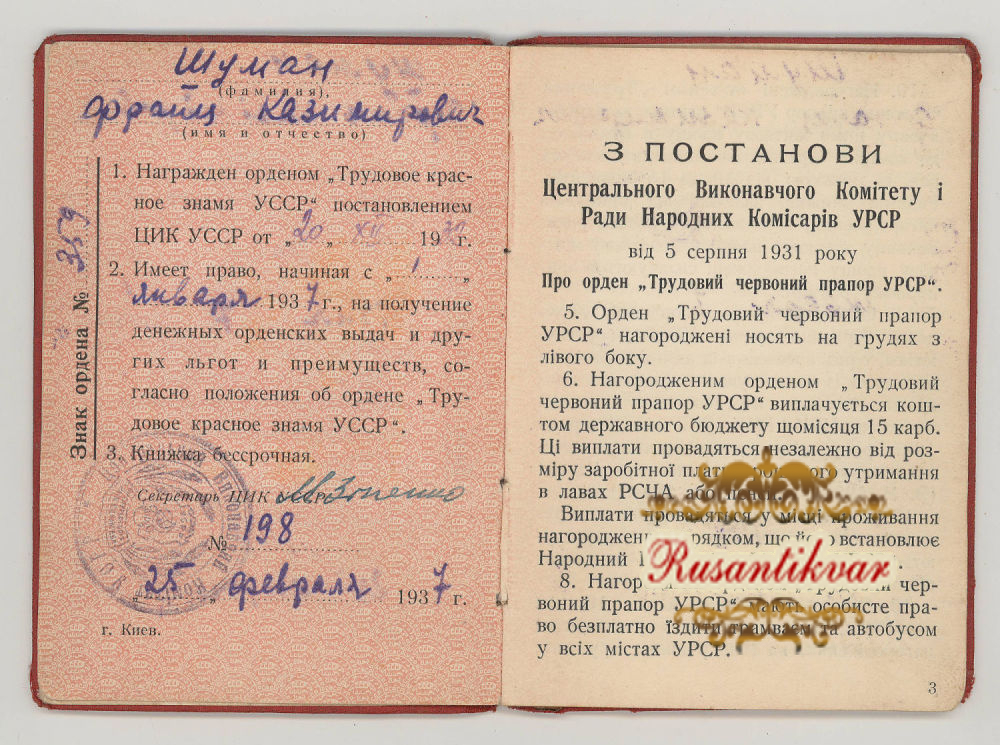 Шуман
(фамилия),
Франц Казимирович
(имя и отчество)
Знак ордена № 359
1. Награжден орденом „Трудовое крас-
ное знамя УССР“ постановлением
ЦИК УССР от „20 „ XII 19 г.
2. Имеет право, начиная с „1 „
января 1937 г., на получение
денежных орденских выдач и дру-
гих льгот и преимуществ, со-
гласно положения об ордене „Тру-
довое красное знамя УССР“.
3. Книжка бессрочная.
Секретарь ЦИК
№ 198
„25 „ февраля 1937 г.
г. Киев.
З ПОСТАНОВИ
Центрального Виконавчого Комітету і
Ради Народних Комісарів УРСР
від 5 серпня 1931 року
Про орден „Трудовий червоний прапор УРСР“.
5. Орден „Трудовий червоний прапор
УРСР“ нагороджені носять на грудях з
лівого боку.
6. Нагородженим орденом „Трудовий
червоний прапор УРСР“ виплачується кош-
том державного бюджету щомісяця 15 карб.
Ці виплати провадяться незалежно від роз-
міру заробітної утримання
в лавах РСЧА або пенсії.
Виплати провадяться у місці проживання
встановлює
Народний
Rusantikvar
8. чер-
воний прапор УРСР“ мають особисте пра-
во безплатно їздити трамваєм та автобусом
у всіх містах УРСР.
3